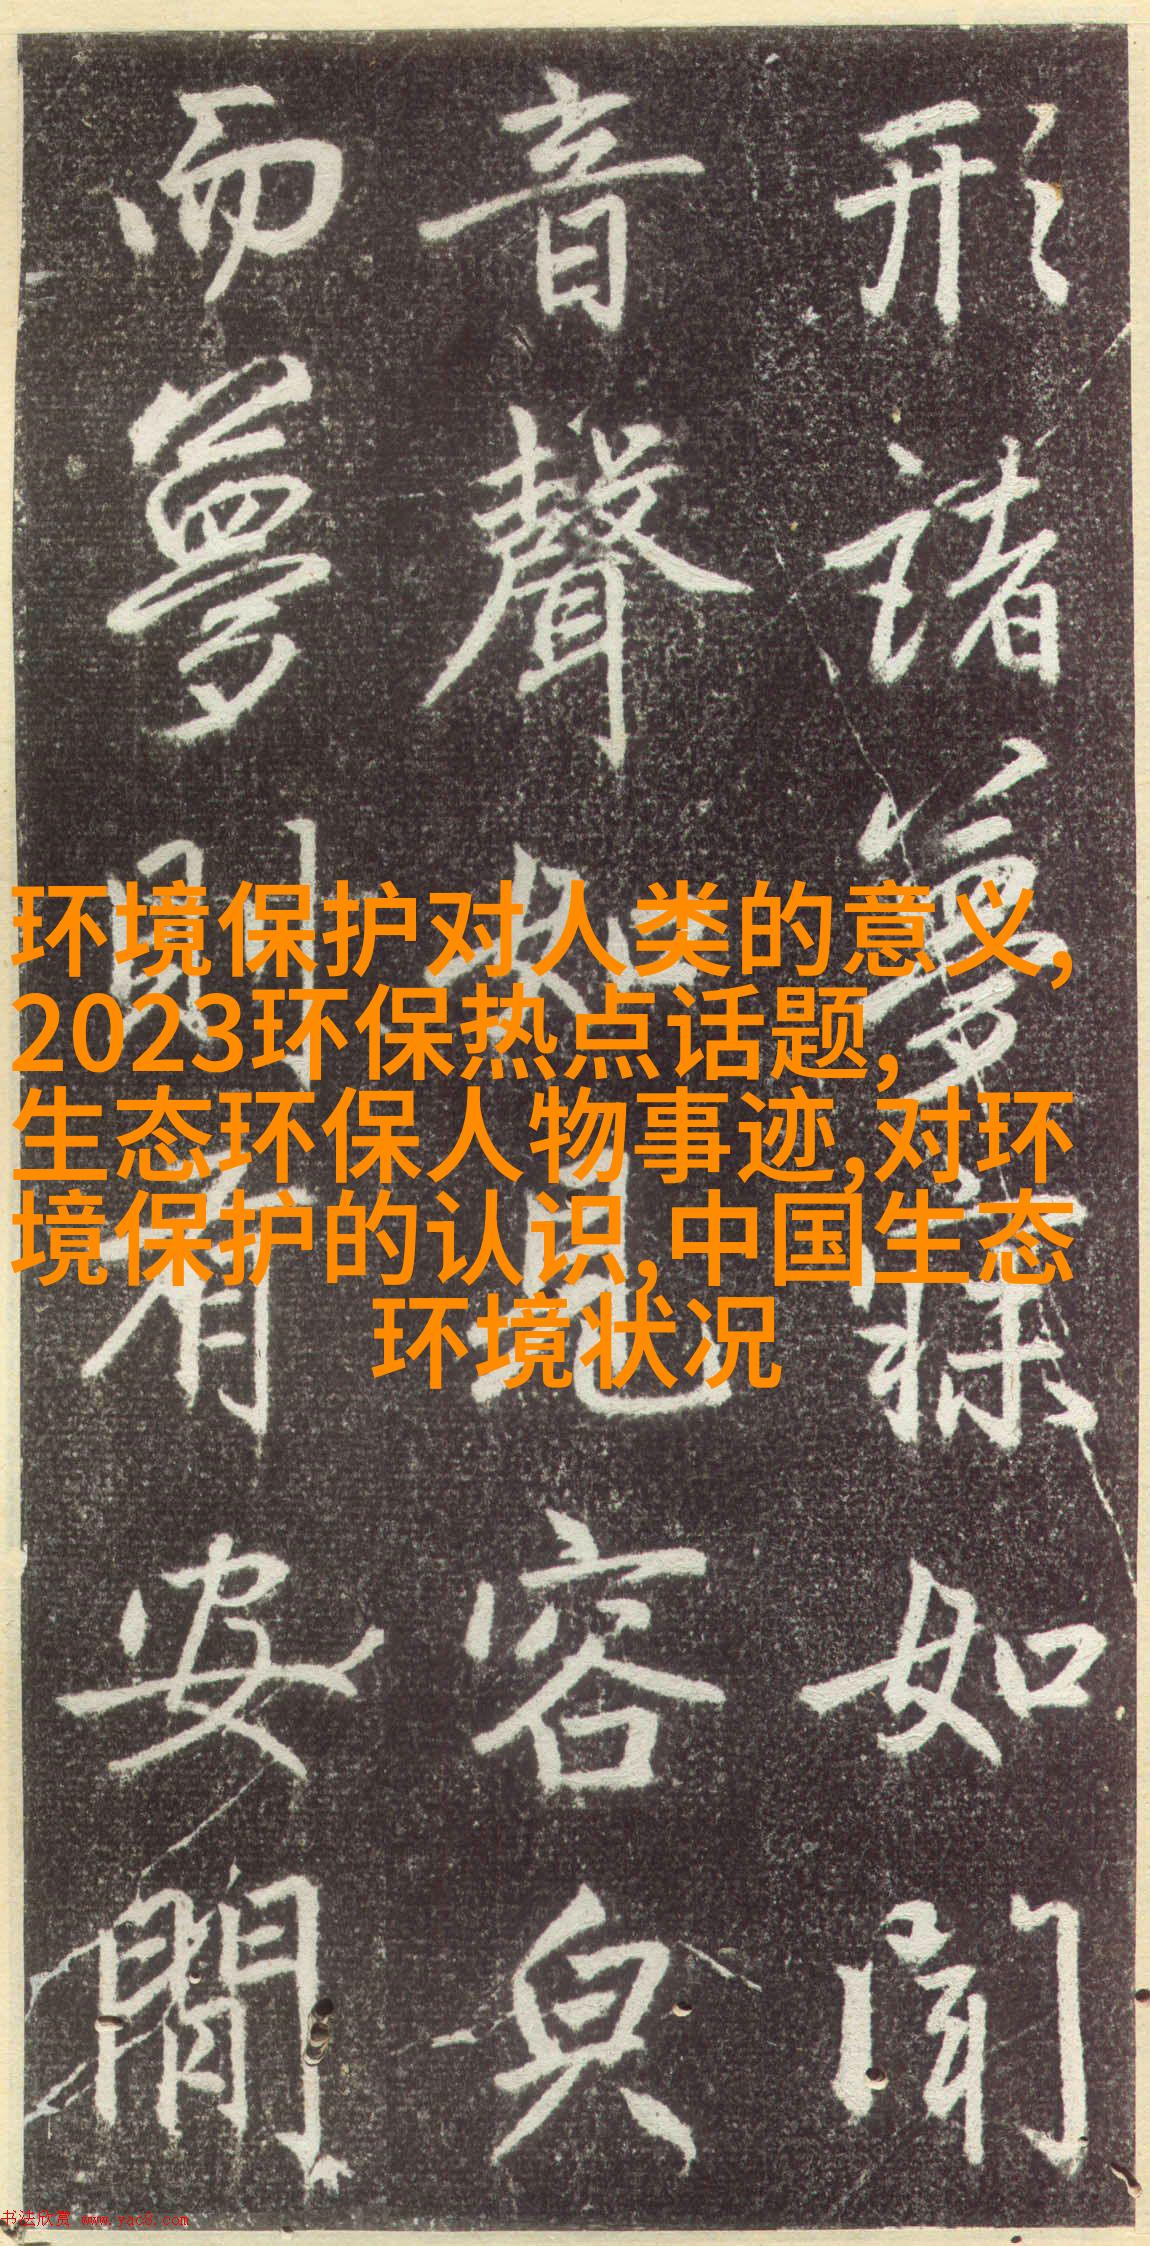 形諸夢寐如聞
音聲如見容皃
而夢則有安閒
环境保护对人类的意义,
2023环保热点话题,
生态环保人物事迹,对环
境保护的认识,中国生态
环境状况
书法欣赏 www.yac8.com